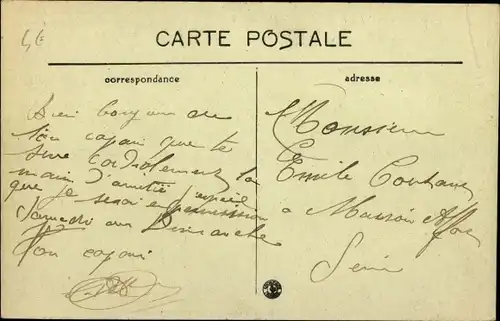 4€
CARTE POSTALE
correspondance
adresse
Bien bonjour de
ton copain que te
serre cordialement la
main d'amitié
que je serai en permission
Samedi ou Dimanche
Ton copain
Monsieur
Emile
a Maison Alfor
Seine